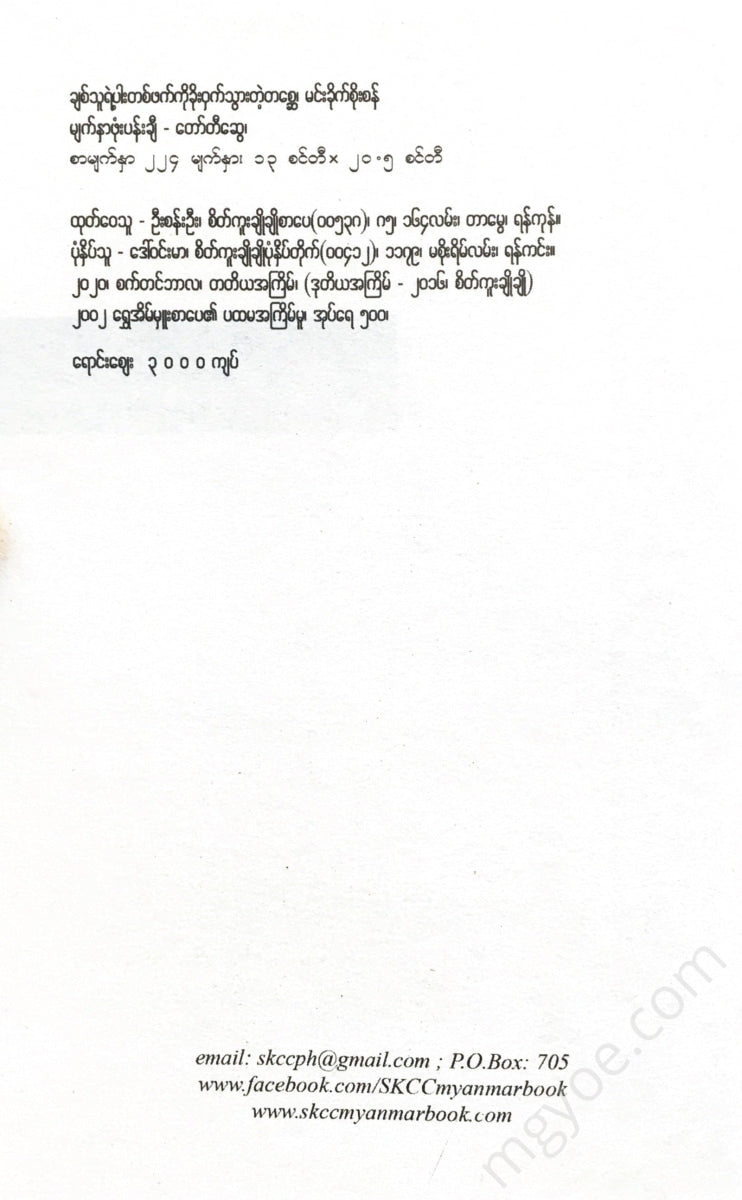 ချစ်သူရဲ့ပါးတစ်ဖက်ကိုခိုးဝှက်သွားတဲ့တစ္ဆေ၊ မင်းခိုက်စိုးစန်
မျက်နှာဖုံးပန်းချီ - တော်တီဆွေ၊
စာမျက်နှာ ၂၂၄ မျက်နှာ၊ ၁၃ စင်တီ× ၂၀.၅ စင်တီ
ထုတ်ဝေသူ - ဦးစန်းဦး၊ စိတ်ကူးချိုချိုစာပေ(၀၀၅၃၈)၊ ဂ၅၊ ၁၆၄လမ်း၊ တာမွေ၊ ရန်ကုန်။
ပုံနှိပ်သူ - ဒေါ်ဝင်းမာ၊ စိတ်ကူးချိုချိုပုံနှိပ်တိုက်(၀၀၄၁၂)၊ ၁၁၇၉၊ မစိုးရိမ်လမ်း၊ ရန်ကင်း။
၂၀၂၀၊ စက်တင်ဘာလ၊ တတိယအကြိမ်၊ (ဒုတိယအကြိမ် - ၂၀၁၆၊ စိတ်ကူးချိုချို)
၂၀၀၂ ရွှေအိမ်မှူးစာပေ၏ ပထမအကြိမ်မူ၊ အုပ်ရေ ၅၀၀၊
ရောင်းဈေး ၃ ၀ ၀ ၀ ကျပ်
email: skccph@gmail.com ; P.O.Box: 705
www.facebook.com/SKCCmyanmarbook
www.skccmyanmarbook.com
mgyoe.com